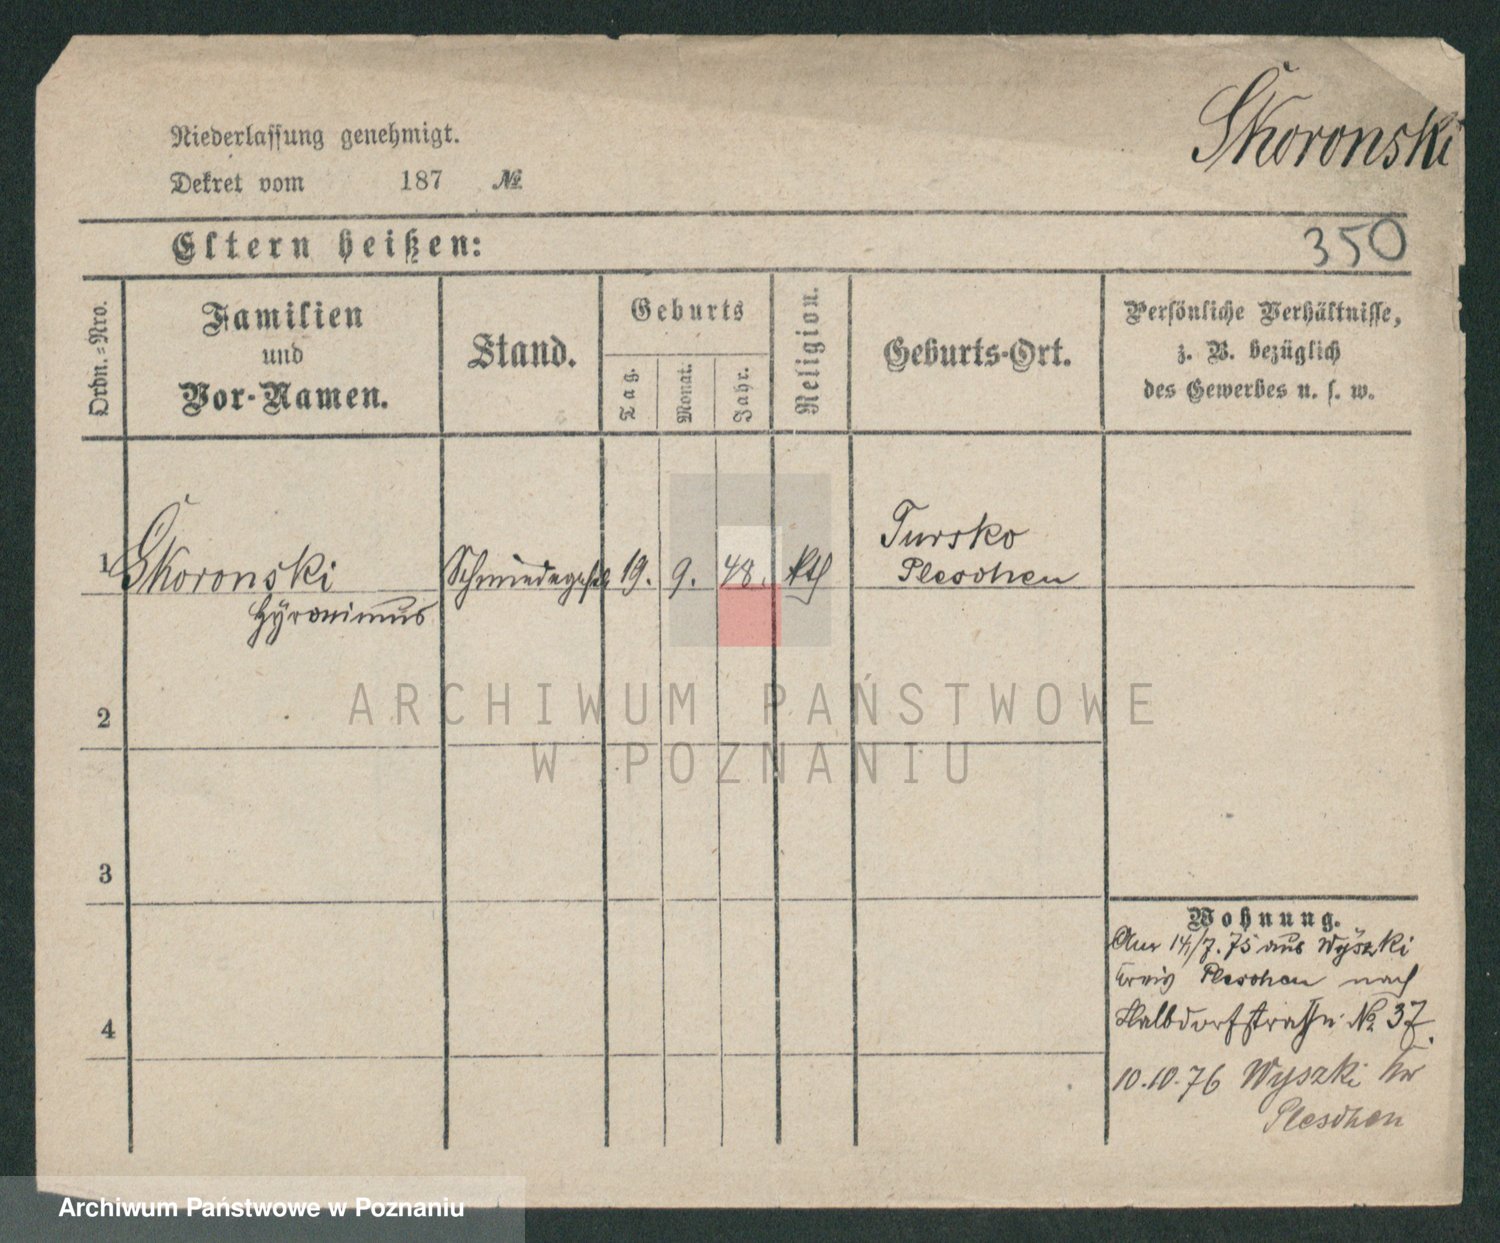 Skoronski
Niederlassung genehmigt.
Dekret vom 187 №
Eltern heißen:
350
Ordn.-Nro.
Familien
und
Vor-Namen.
Stand.
Geburts
Tag.
Monat.
Jahr.
Religion.
Geburts-Ort.
Persönliche Verhältnisse,
z. B. bezüglich
des Gewerbes u. s. w.
1 Skoronski
Hÿronimus
Schmiedegesel
19. 9. 48. kth
Tursko
Pleschen
2
3
4
ARCHIWUM PAŃSTWOWE
W POZNANIU
Wohnung.
14/7. 75 aus Wÿszki
Kreis Pleschen nach
Halbdorfstraße No. 37.
10.10.76 Wyszki Kr
Pleschen
Archiwum Państwowe w Poznaniu